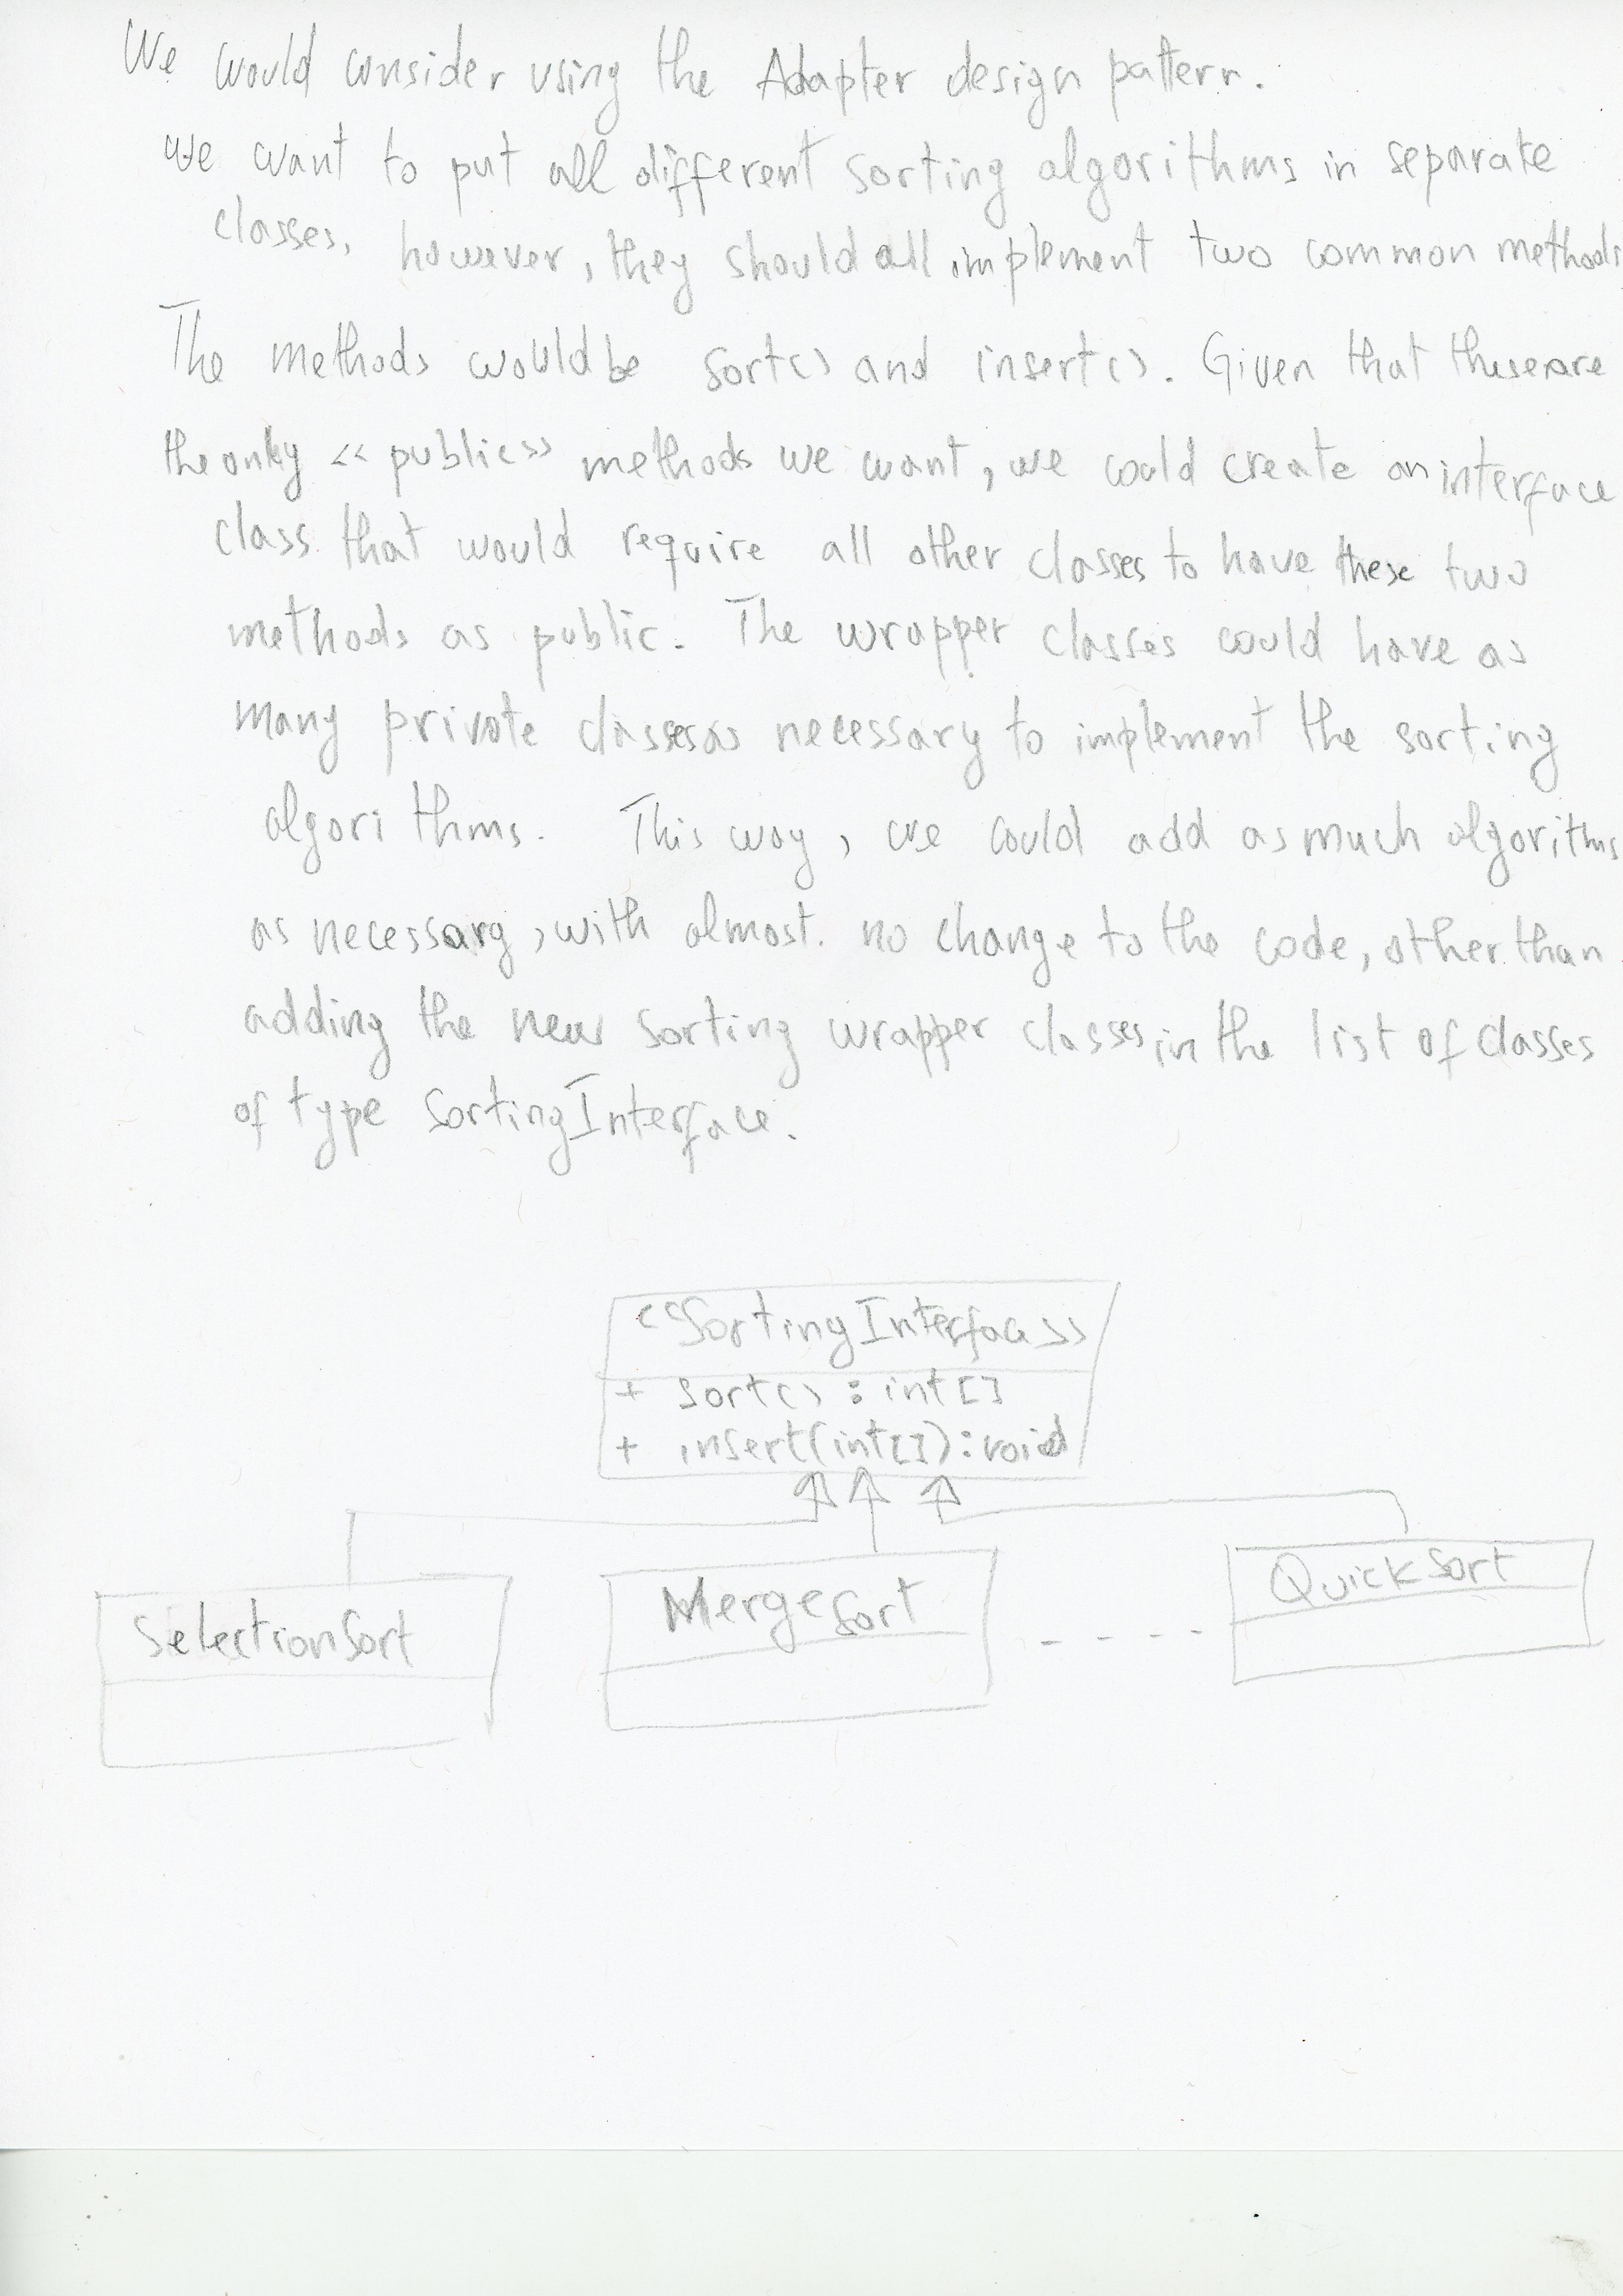 We would consider using the Adapter design pattern.
we want to put all different sorting algorithms in separate
classes, however, they should all implement two common methods
The methods would be sort() and insert(). Given that these are
the only <<public>> methods we want, we could create an interface
class that would require all other classes to have these two
methods as public. The wrapper classes could have as
many private classes as necessary to implement the sorting
algorithms. This way, we could add as much algorithms
as necessary, with almost. no change to the code, other than
adding the new sorting wrapper classes in the list of classes
of type SortingInterface.
<<SortingInterface>>
+ sort() : int[]
+ insert(int[]) : void
SelectionSort
MergeSort
QuickSort